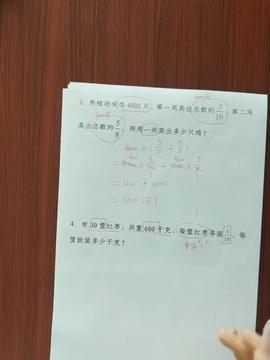 3. 养殖场有鸡 4000 只, 第一周卖出总数的 3/10, 第二周
卖出总数的 5/8, 两周一共卖出多少只鸡?
4000×(3/10+5/8)
=4000×3/10+4000×5/8
=1200+2500
=3700(只)
4. 有 30 筐红枣, 共重 600 千克, 每筐红枣多装 1/10, 每
筐能装多少千克?